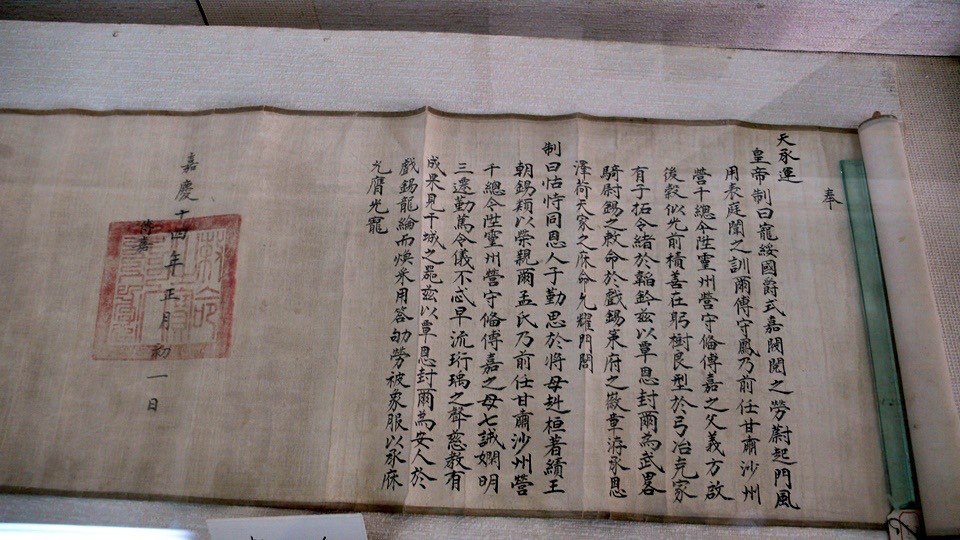 奉
天承運
皇帝制曰寵綏國爵式嘉閥閱之勞蔚起門風
用表庭闈之訓爾傅守鳳乃前任甘肅沙州
營千總今陞靈州營守備傅嘉之父義方啟
後穀似光前積善在躬樹良型於弓冶克家
有子拓令緒於韜鈐茲以覃恩封爾為武畧
騎尉錫之敕命於戲錫策府之徽章洊承恩
澤荷天家之庥命允耀門閭
制曰怙恃同恩人子勤思於將母赳桓著績王
朝錫類以榮親爾孟氏乃前任甘肅沙州營
千總今陞靈州營守備傅嘉之母七誡嫻明
三遷勤篤令儀不忒早流珩瑀之聲慈教有
成果見干城之器茲以覃恩封爾為安人於
戲錫龍綸而煥采用答劬勞被象服以承庥
允膺光寵
嘉慶十四年正月初一日
敕命之寶